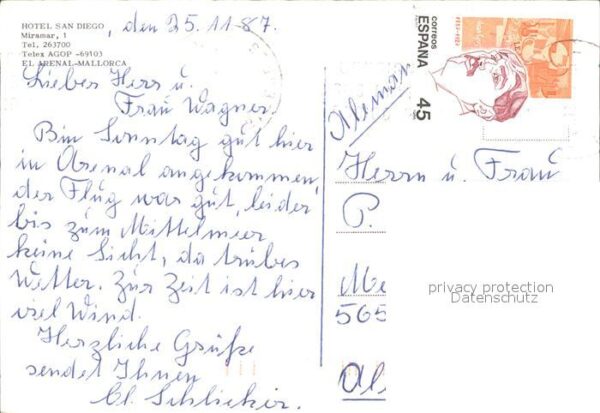 HOTEL SAN DIEGO
Miramar, 1
Tel. 263700
Telex AGOP -69103
EL ARENAL-MALLORCA
, den 25.11-87.
Liebes Herr u.
Frau Wagner.
Bin Sonntag gut hier
in Arenal angekommen,
der Flug war gut, leider
bis zum Mittelmeer
keine Sicht, da trübes
Wetter. Zur Zeit ist hier
viel Wind.
Herzliche Grüße
sendet Ihnen
correos
ESPAÑA
45
Aleman
Herrn u. Frau
P.
Me
565
Al
privacy protection
Datenschutz